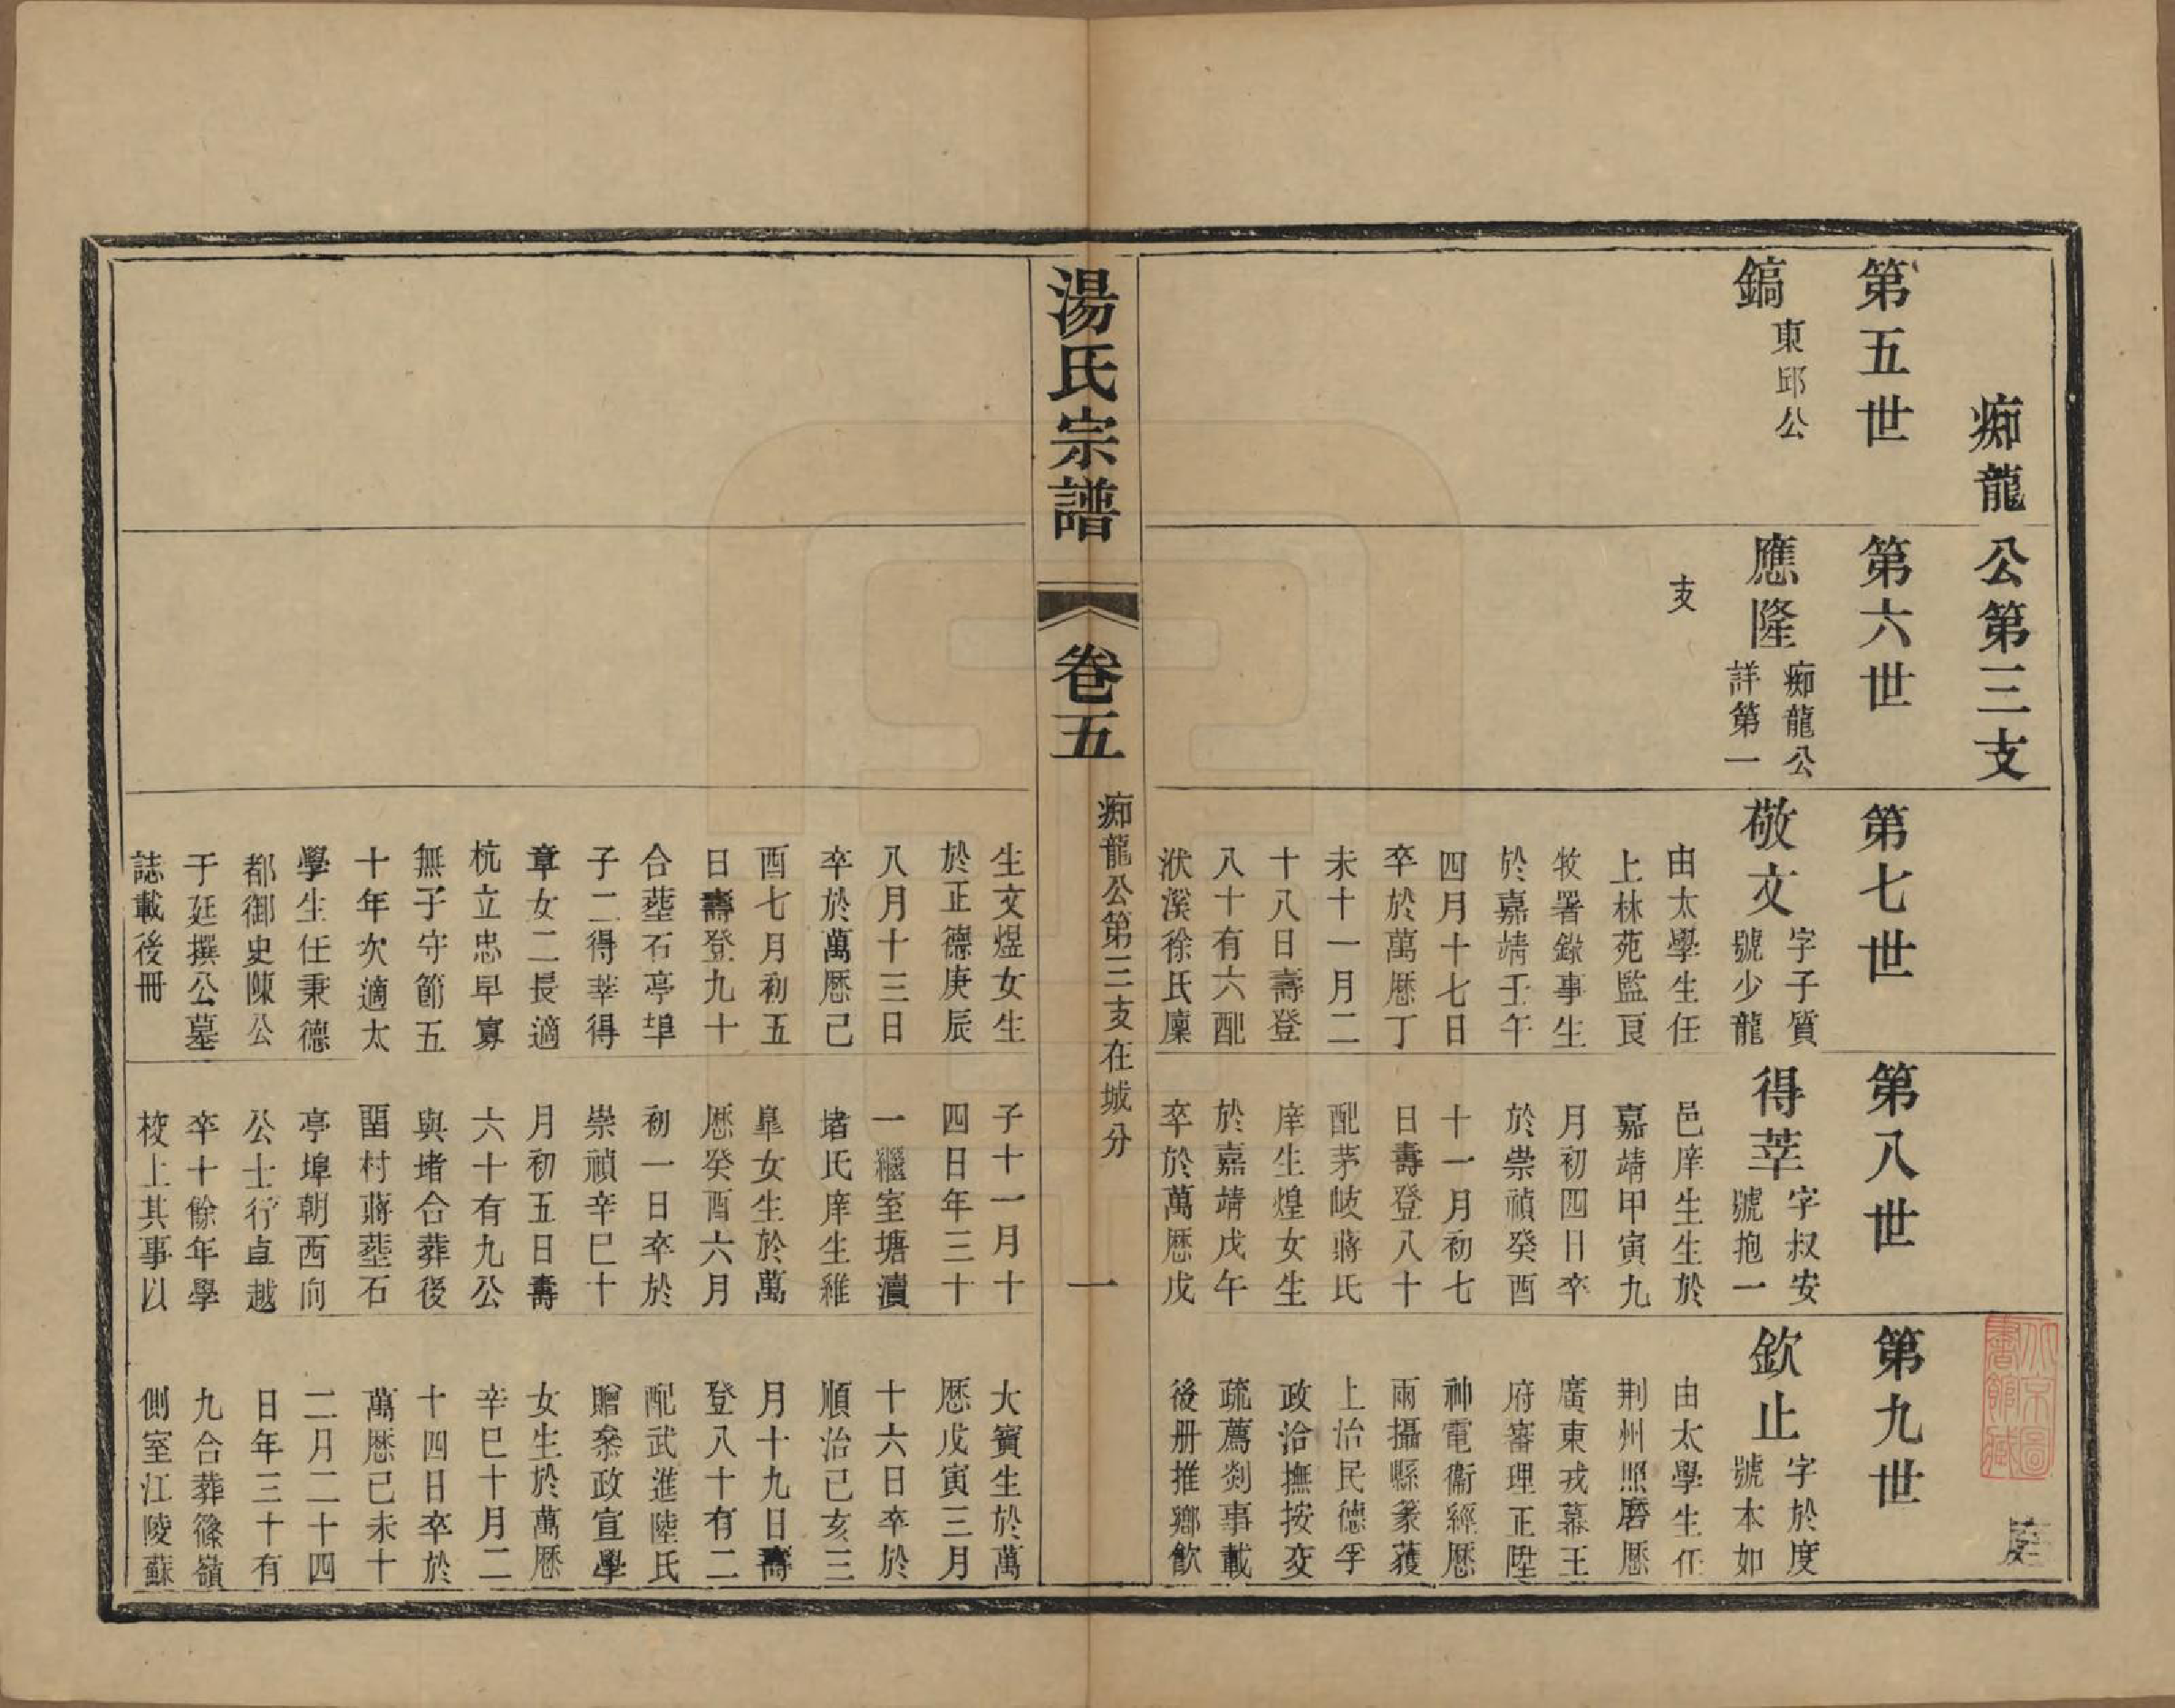 痴龍公第三支
第五世
鎬
東邱公
第六世
應隆
痴龍公
詳第一
支
第七世
敬文
字子質
號少龍
由太學生任
上林苑監良
牧署錄事生
於嘉靖壬午
四月十七日
卒於萬歷丁
未十一月二
十八日壽登
八十有六配
洑溪徐氏廩
生文煜女生
於正德庚辰
八月十三日
卒於萬歷己
酉七月初五
日壽登九十
合塟石亭埠
子二得莘得
章女二長適
杭立忠早寡
無子守節五
十年次適太
學生任秉德
都御史陳公
于廷撰公墓
誌載後冊
第八世
得莘
字叔安
號抱一
邑庠生生於
嘉靖甲寅九
月初四日卒
於崇禎癸酉
十一月初七
日壽登八十
配茅岐蔣氏
庠生煌女生
於嘉靖戊午
卒於萬歷戊
子十一月十
四日年三十
一繼室塘瀆
堵氏庠生維
皐女生於萬
歷癸酉六月
初一日卒於
崇禎辛巳十
月初五日壽
六十有九公
與堵合葬後
村蔣塟石
亭埠朝西向
公士行卓越
卒十餘年學
校上其事以
第九世
欽止
字於度
號本如
由太學生任
荆州照磨歷
廣東戎幕王
府審理正陞
神電衞經歷
兩攝縣篆獲
上治民德孚
政洽撫按交
疏薦剡事載
後册推鄉飲
大賓生於萬
歷戊寅三月
十六日卒於
順治己亥三
月十九日壽
登八十有二
配武進陸氏
贈叅政宣學
女生於萬歷
辛巳十月二
十四日卒於
萬歷己未十
二月二十四
日年三十有
九合葬篠嶺
側室江陵蘇
湯氏宗譜
卷五
痴龍公第三支在城分
一